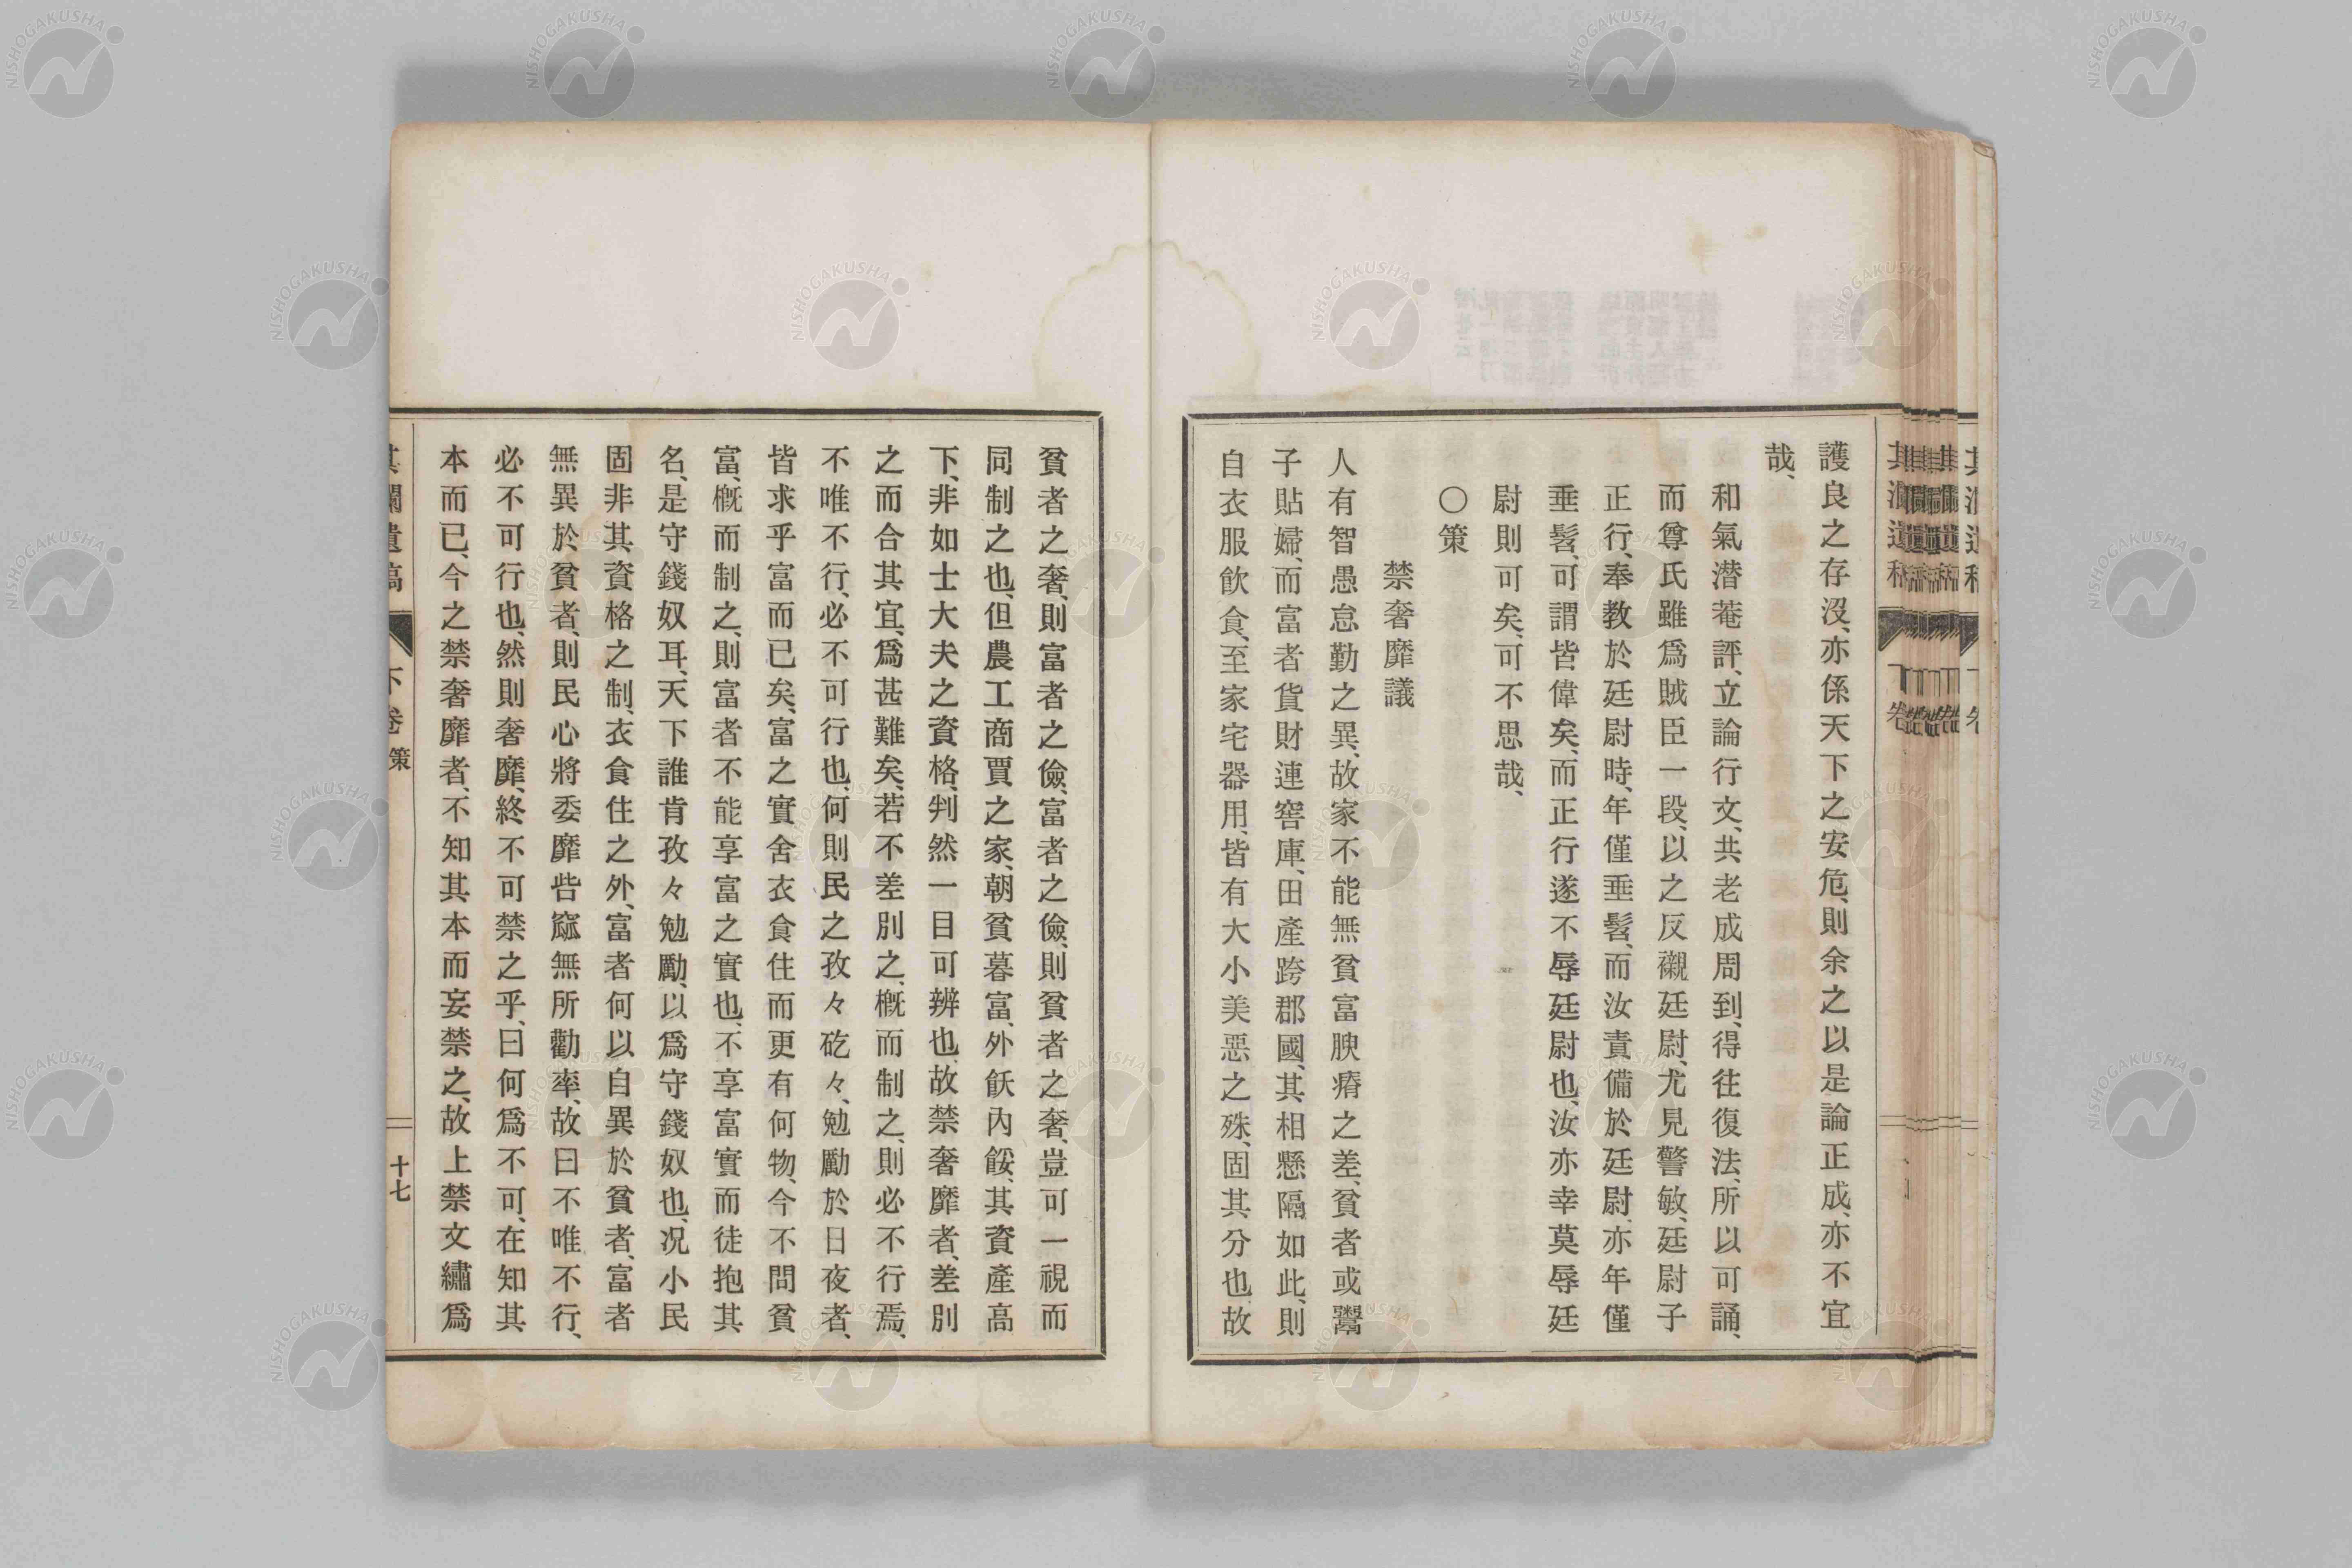 護良之存沒、亦係天下之安危、則余之以是論正成、亦不宜
哉、
和氣潜菴評、立論行文、共老成周到、得往復法、所以可誦、
而尊氏雖爲賊臣一段、以之反襯廷尉、尤見警敏、廷尉子
正行、奉教於廷尉時、年僅垂髫、而汝責備於廷尉、亦年僅
垂髫、可謂皆偉矣、而正行遂不辱廷尉也、汝亦幸莫辱廷
尉則可矣、可不思哉、
〇策
禁奢靡議
人有智愚怠勤之異、故家不能無貧富腴瘠之差、貧者或鬻
子貼婦、而富者貨財連窖庫、田產跨郡國、其相懸隔如此、則
自衣服飮食、至家宅器用、皆有大小美惡之殊、固其分也、故
貧者之奢、則富者之儉、富者之儉、則貧者之奢、豈可一視而
同制之也、但農工商賈之家、朝貧暮富、外飫內餒、其資產高
下、非如士大夫之資格、判然一目可辨也、故禁奢靡者、差別
之而合其宜、爲甚難矣、若不差別之、槪而制之、則必不行焉、
不唯不行、必不可行也、何則民之孜々矻々、勉勵於日夜者、
皆求乎富而已矣、富之實舍衣食住而更有何物、今不問貧
富、槪而制之、則富者不能享富之實也、不享富實而徒抱其
名、是守錢奴耳、天下誰肯孜々勉勵、以爲守錢奴也、况小民
固非其資格之制、衣食住之外、富者何以自異於貧者、富者
無異於貧者、則民心將委靡呰窳無所勸率、故曰不唯不行、
必不可行也、然則奢靡、終不可禁之乎、曰何爲不可、在知其
本而已、今之禁奢靡者、不知其本而妄禁之、故上禁文繡爲
其瀾遺稿 下卷 策 十七